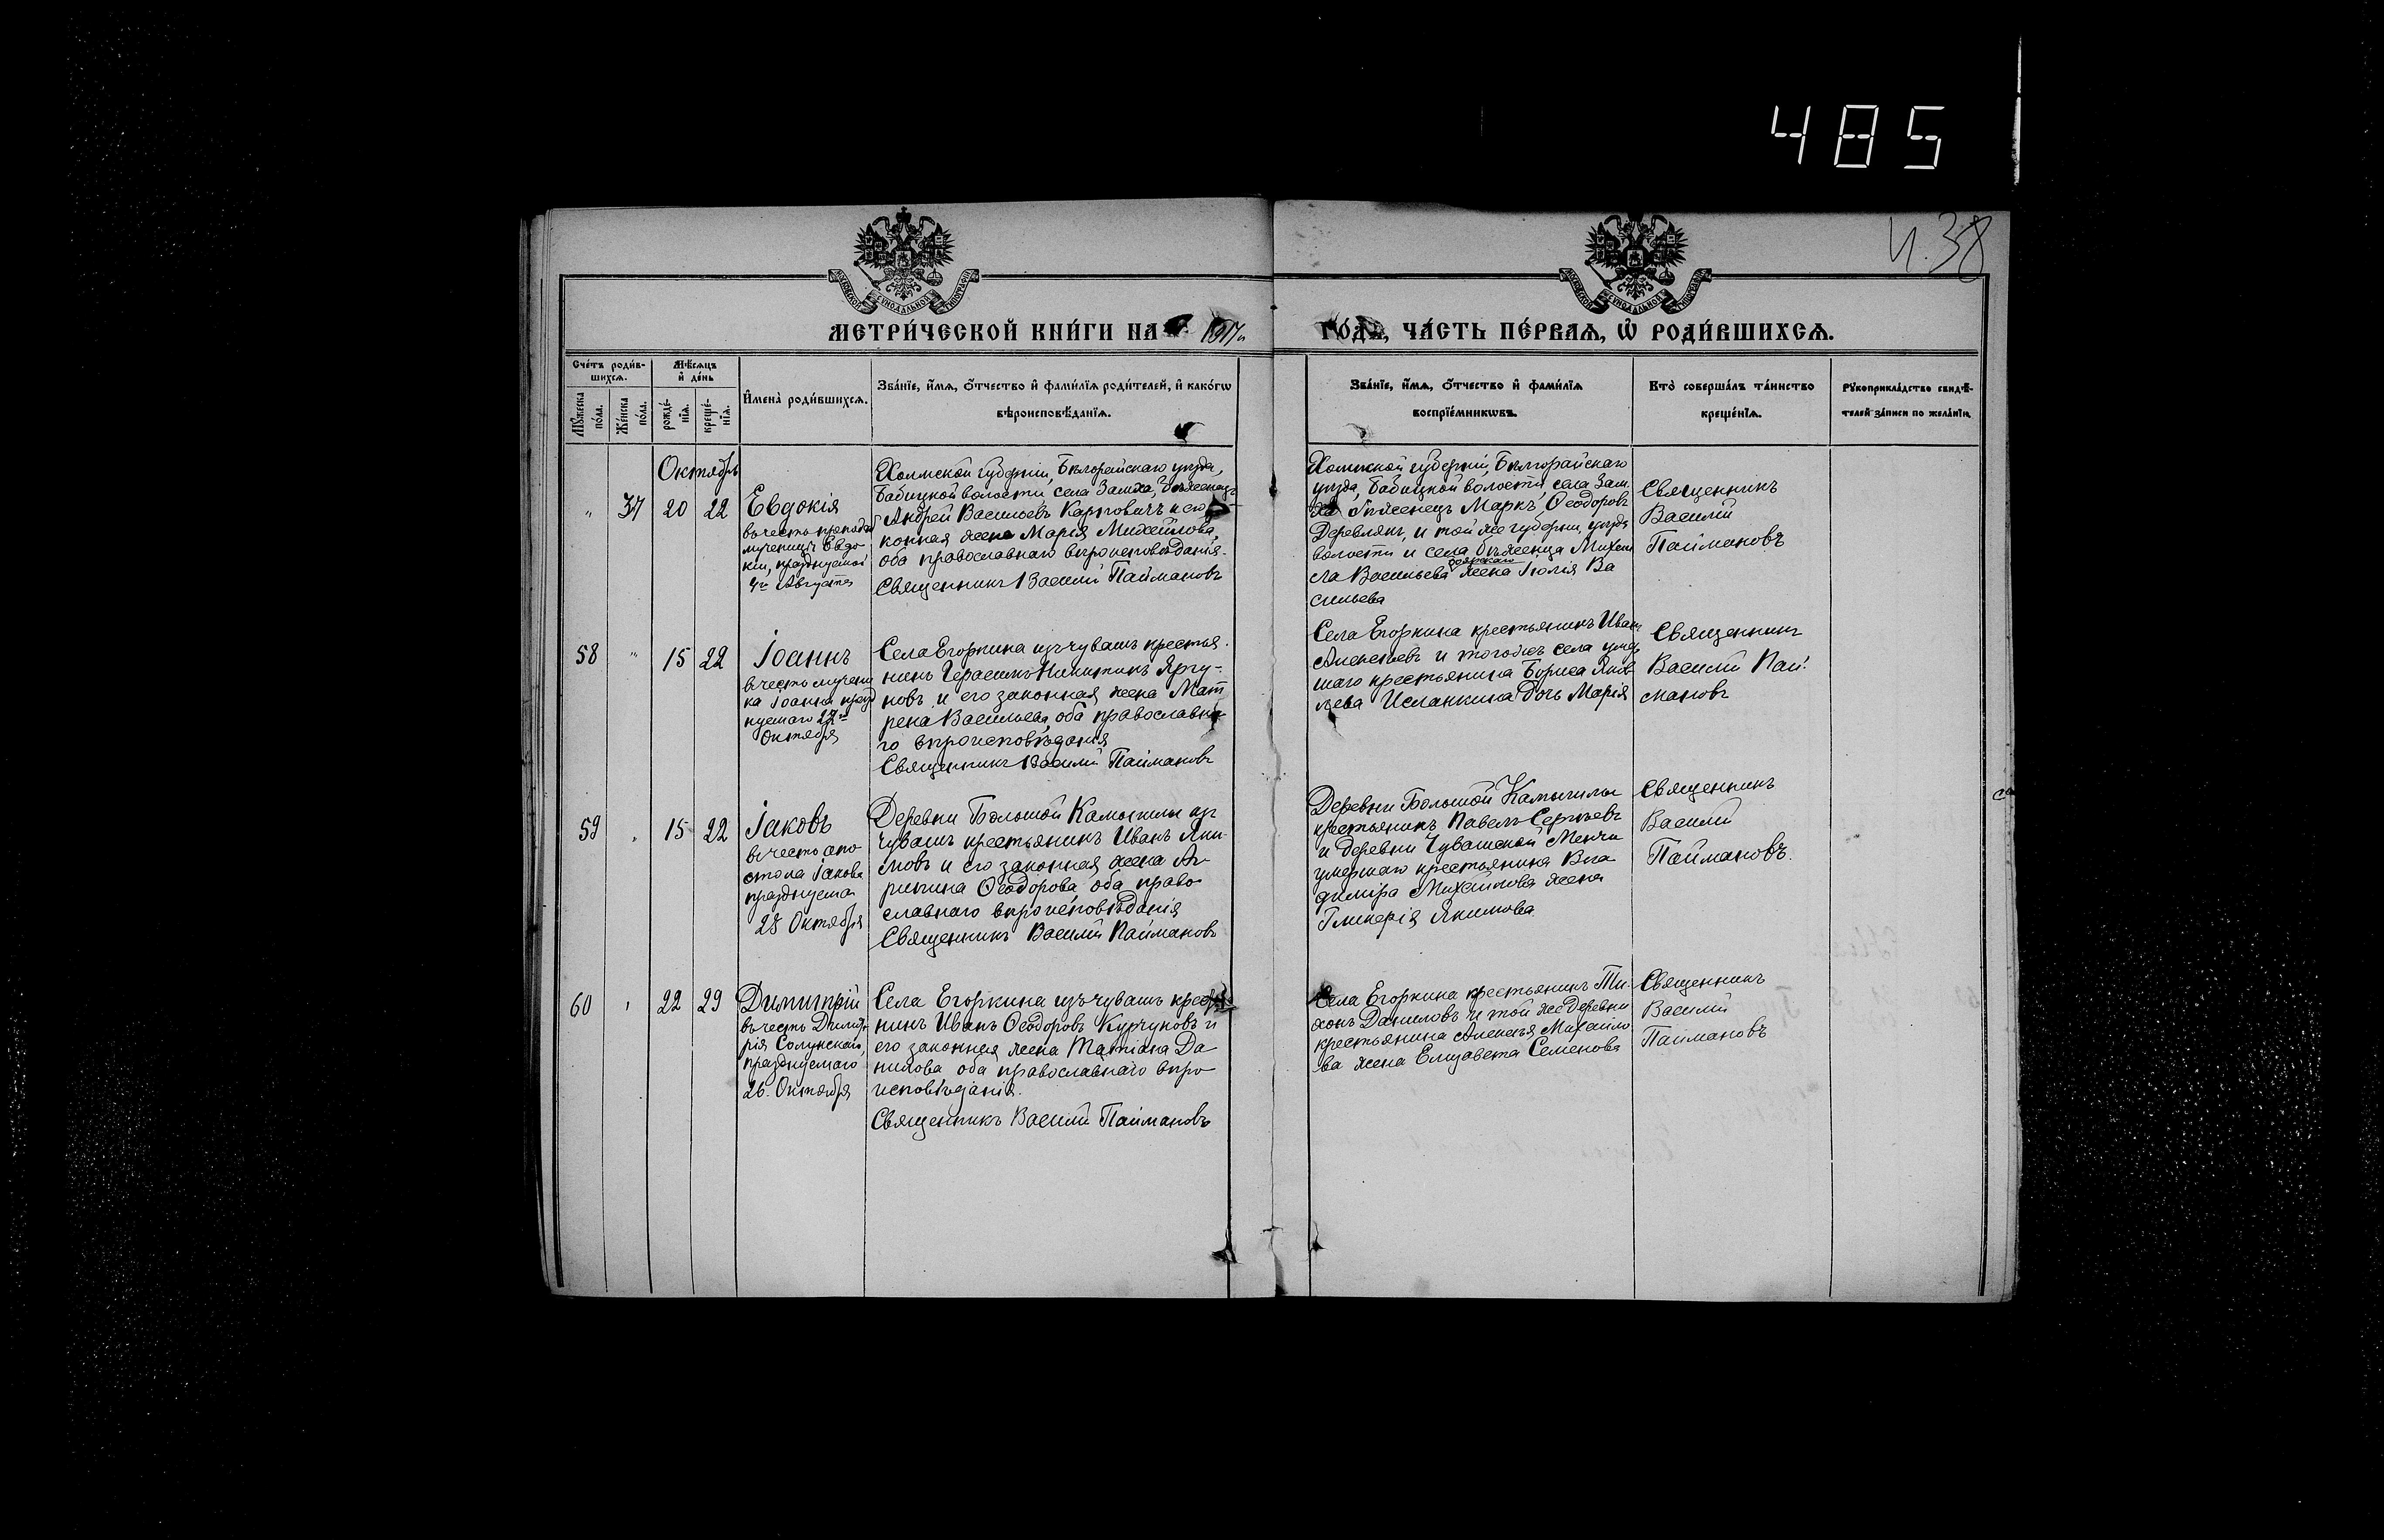 485
и. 38
МЕТРИ́ЧЕСКОЙ КНИ́ГИ НА 1917 ГО́ДЪ, ЧА́СТЬ ПЕ́РВАѦ, Ѡ҆ РОДИ́ВШИХСѦ.
Сче́тъ роди́в-
шихсѧ.
Мꙋ́жеска по́ла.
Же́нска по́ла.
Мѣ́сѧцъ
и҆ де́нь
рожде́-
нїѧ.
креще́-
нїѧ.
И҆мена̀ роди́вшихсѧ.
Зва́нїе, и҆́мѧ, ѻ҆́тчество и҆ фами́лїѧ роди́телей, и҆ како́гѡ
вѣроисповѣ́данїѧ.
Зва́нїе, и҆́мѧ, ѻ҆́тчество и҆ фами́лїѧ
воспрїе́мникѡвъ.
Кто̀ соверша́лъ та́инство
креще́нїѧ.
Рꙋкоприкла́дство свидѣ́-
телей за́писи по жела́нїю.
Октябрь
" 37 20 22
Евдокія
въ честь преподоб
мученицы Евдо
кіи, празднуемой
4го Августа
Холмской губерніи, Бѣлгорайскаго уѣзда,
Бабицкой волости, села Замха, бѣженецъ
Андрей Васильевъ Карповичъ и его
конная жена Марія Михайлова,
оба православнаго вѣроисповѣданія.
Священникъ Василій Паймановъ
Холмской губерніи, Бѣлгорайскаго
уѣзда, Бабицкой волости, села Зам
ха бѣженецъ Маркъ Ѳеодоровъ
Деревлянъ, и той же губерніи, уѣзда
волости и села бѣженца Михаи
ла Васильева жена Іюлія Ва
сильева
Священникъ
Василій
Паймановъ
58 " 15 22
Іоаннъ
въ честь мучени
ка Іоанна празд
нуемаго
Октября
Села Егоркина изъ чувашъ крестья
нинъ Герасимъ Никитинъ Яргу-
новъ и его законная жена Мат
рена Васильева, оба православна
го вѣроисповѣданія
Священникъ Василій Паймановъ
Села Егоркина крестьянинъ Иванъ
Алексѣевъ и того же села умер
шаго крестьянина Бориса Яков
лева Исланкина дочь Марія
Священникъ
Василій Пай
мановъ
59 " 15 22
Іаковъ
въ честь апо
стола Іакова
празднуема
23 Октября
Деревни Большой Камышлы изъ
чувашъ крестьянинъ Иванъ Яки-
мовъ и его законная жена Аг
рипина Ѳеодорова оба право
славнаго вѣроисповѣданія
Священникъ Василій Паймановъ
Деревни Большой Камышлы
крестьянинъ Павелъ Сергѣевъ
и деревни Чувашской Менчи
умершаго крестьянина Вла
диміра Михайлова жена
Гликерія Якимова
Священникъ
Василій
Паймановъ.
60 " 22 29
Димитрій
въ честь Димит
рія Солунскаго,
празднуемаго
26 Октября
Села Егоркина изъ чувашъ крестья
нинъ Иванъ Ѳеодоровъ Курчуновъ и
его законная жена Татіана Да
нилова оба православнаго вѣро
исповѣданія.
Священникъ Василій Паймановъ
Села Егоркина крестьянинъ Ти
хонъ Даниловъ и той же деревни
крестьянина Алексѣя Михайло
ва жена Елизавета Семенова
Священникъ
Василій
Паймановъ